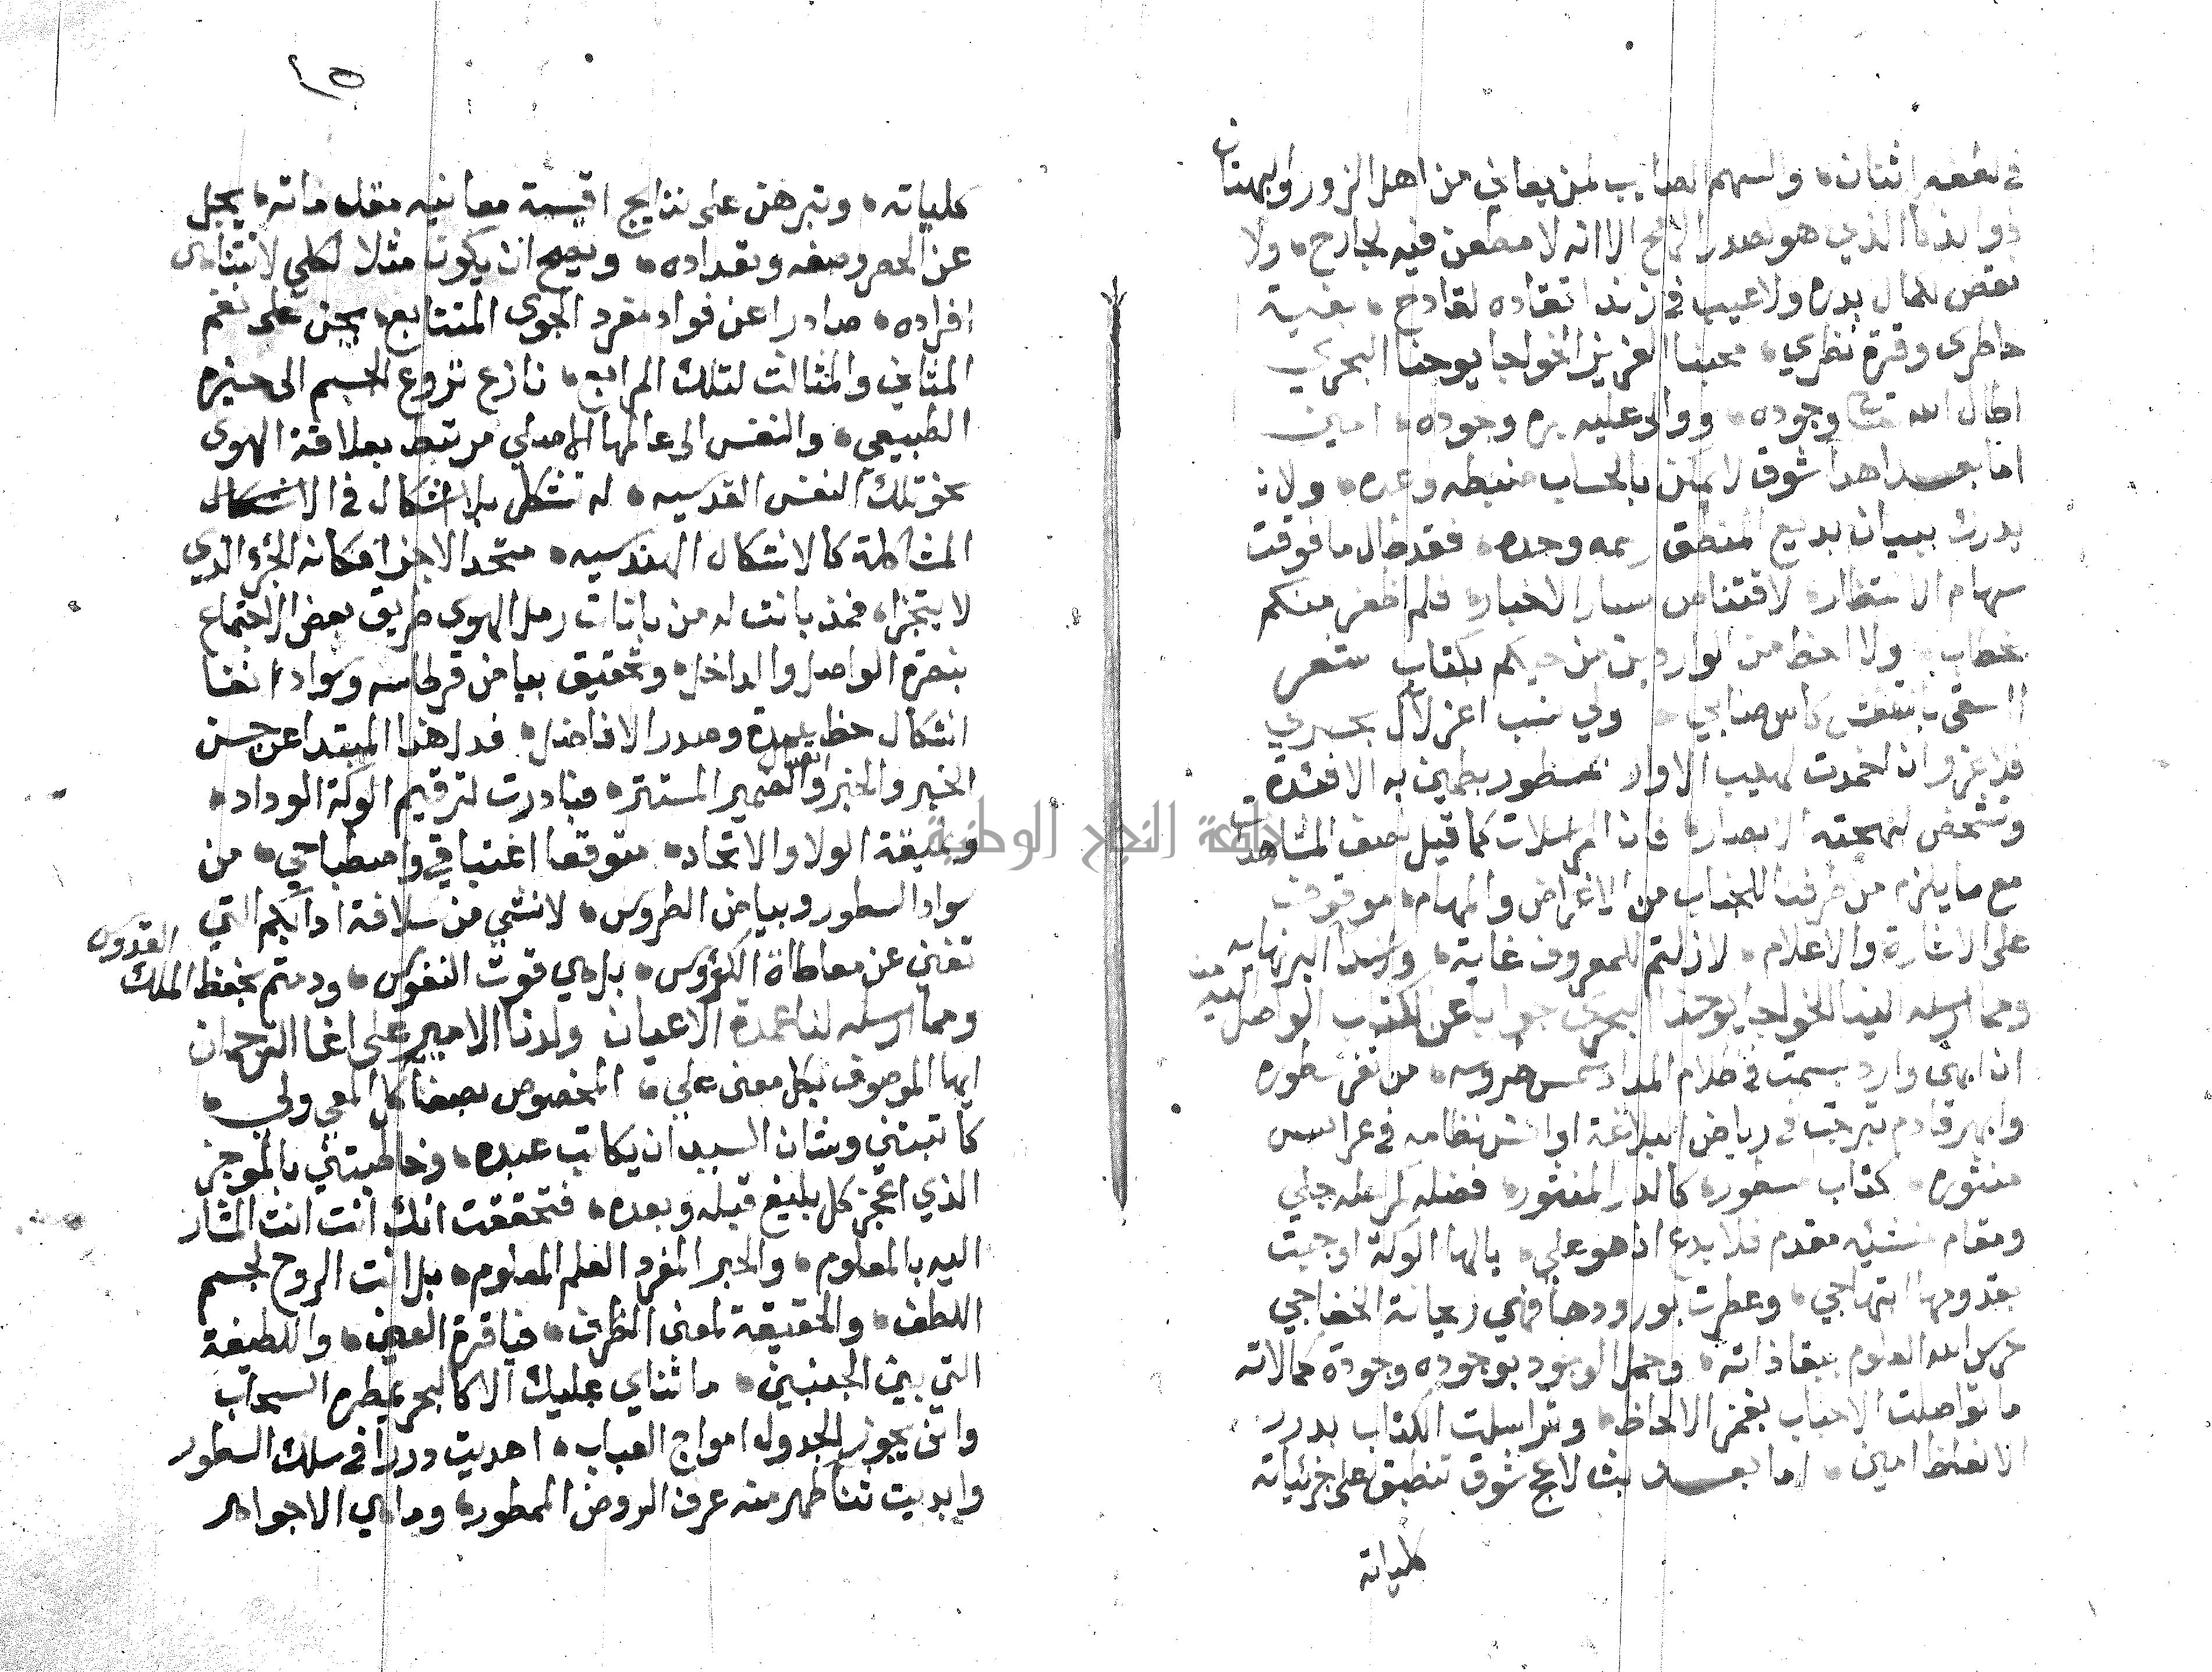 في لطفه اثنان، والسهم الصايب لمن يعاني من اهل الزور والبهتان
ذو الذكا الذي هو صدر الرامح الا انه لا مطعن فيه لجارح، ولا
نقص لكمال بدره ولا عيب في زند اتقاده لقادح، بغية
خاطري وقرة نظري، محبنا العزيز الخواجا يوحنا البحري
اطال الله وجوده، ووالى عليه وجوده، امين
اما بعد اهدا شوق لا يمكن بالحساب ضبطه وعده، ولا
يدرك ببيان بديع المنطق رسمه وحده، فقد طال ما فوقت
سهام الانتظار، لاقتناص سار الاخبار، فلم اظفر منكم
بخطاب، ولا احظ من الواردين من حيكم بكتاب شعر
ولي نسب اعز لآل بحري
فلا غرو ان اخمدت لهيب الاوار بسطور يطمين به الافئدة
وتشخص لبهجته الابصار، فان المراسلات كما قيل نصف المشاهدات
مع ما يلزم من طرفنا للجناب من الاغراض والمهام، موقوف
على الاشارة والاعلام، لازلتم للمعروف غاية،
ومما ارسله الينا الخواجا يوحنا البحري جوابا عن الكتاب الواصل اليه منا
ان ابهى وارد بسمت في ظلام المداد شمس طروسه، من ثغر سطوره
وابهر قادم تبرجت في رياض البلاغة اوانس نظامه في عرايس
منثوره، كتاب مسطور، كالدر المنثور، فضله لمرسله جلي
ومقام منشئه مقدم فلا بدع اذ هو علي، يا لها الوكة اوجبت
بقدومها ابتهاجي، وعطرت بورودها فهي ريحانة الخفاجي
حرس الله العلوم ببقا ذاته، وجمل الوجود بوجوده وجودة كمالاته
ما تواصلت الاحباب بغمز الالحاظ، وتراسلت الكتاب بدرر
الالفاظ امين، اما بعد بث لاعج شوق تنطبق على جزئياته
كلياته
١٥
كلياته، وتبرهن على نتايج اقيسة معانيه مقدماته، يجل
عن الحصر وصفه وتعداده، ويصح ان يكون مثلا لكلي لا تتناهى
افراده، صادرا عن فواد مفرد الجوى المتتابع، يحن على نغم
المثاني والمثالث لتلك المرابع، نازع نزوع الجسم الى حيزه
الطبيعي، والنفس الى عالمها الاصلي مرتبط بعلاقة الهوى
نحو تلك النفس القدسيه، له تشكل بلا اشكال في الاشكال
المشاكلة كالاشكال الهندسيه، متحد الاجزا فكانه الجزء الذي
لا يتجزا، فمذ بانت له من بانات رمل الهوى طريق بعض الاجتماع
بنصرة الواصل والداخل، وتحقيق بياض قرطاسه وسواد انقا
اشكال خط عمدة وصدر الافاضل، فدل هذا المبتدا عن حسن
الخبر والمخبر واتصال الضمير المستتر، فبادرت لترقيم الوكة الوداد،
ونميقة الولا والاتحاد، متوقعا اغتباقي واصطباحي، من
سواد السطور وبياض الطروس، لانتشي من سلافة ادابكم التي
تغني عن معاطاة الكؤوس، بل هي قوت النفوس، ودمتم بحفظ الملك القدوس
ومما ارسله لنا عمدة الاعيان ولدنا الامير علي اغا الترجمان
ايها الموصوف بكل معنى علي، المخصوص بصفا كل المعي ولي،
كاتبتني وشان السيد ان يكاتب عبده، وخاطبتني بالموجز
الذي اعجز كل بليغ قبله وبعده، فتحققت انك انت انت المشار
اليه بالمعلوم، والخبر المفرد العلم المعلوم، بل انت الروح لجسم
اللطف، والحقيقة لمعنى الظرف، فيا قرة العين، واللطيفة
التي بين الجنبين، ما ثناي عليك الا كالبحر يمطره السحاب
وانى يجوز للجدول امواج العباب، اهديت دررا في سلك السطور
وابديت ثنا ظهر منه عرف الروض الممطور، وما هي الا جواهر
جامعة النجاح الوطنية